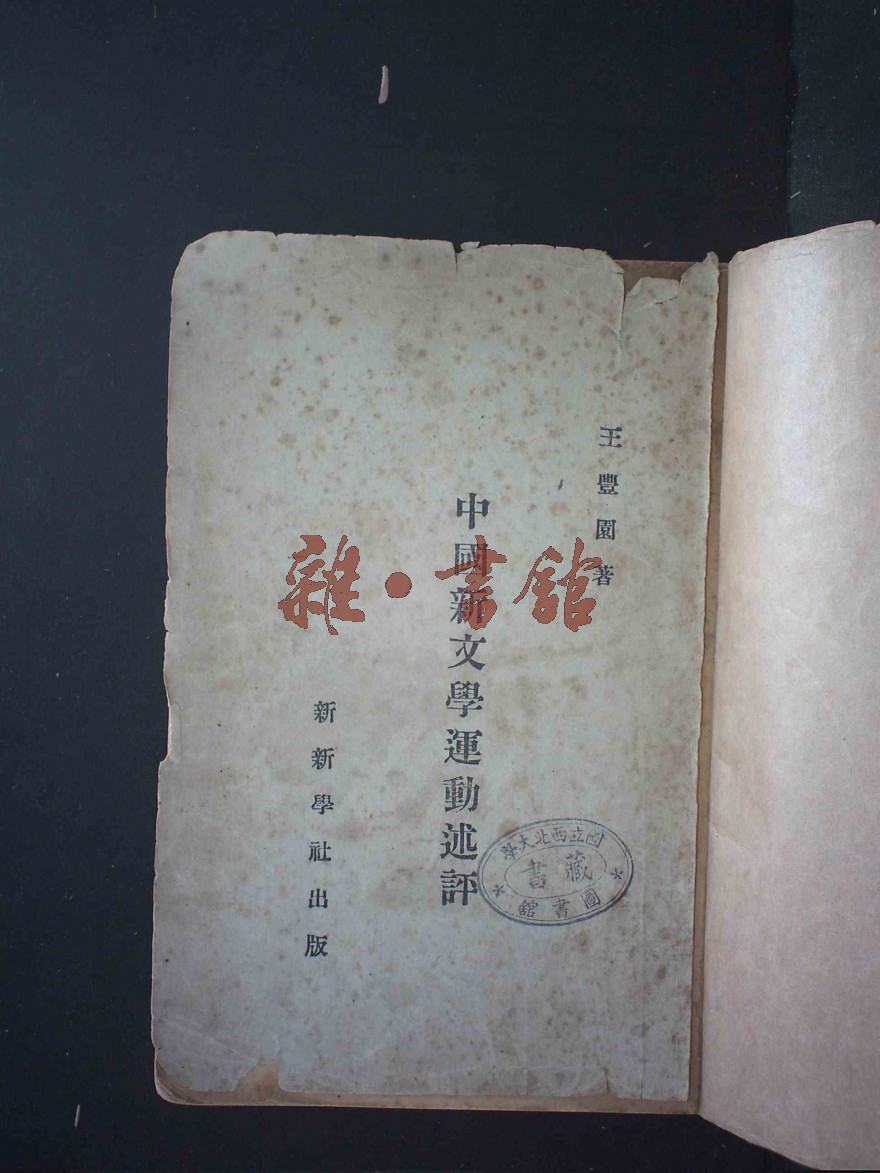 王豐園著
中國新文學運動述評
新新學社出版
雜·書館
國立西北大學
藏書
圖書館